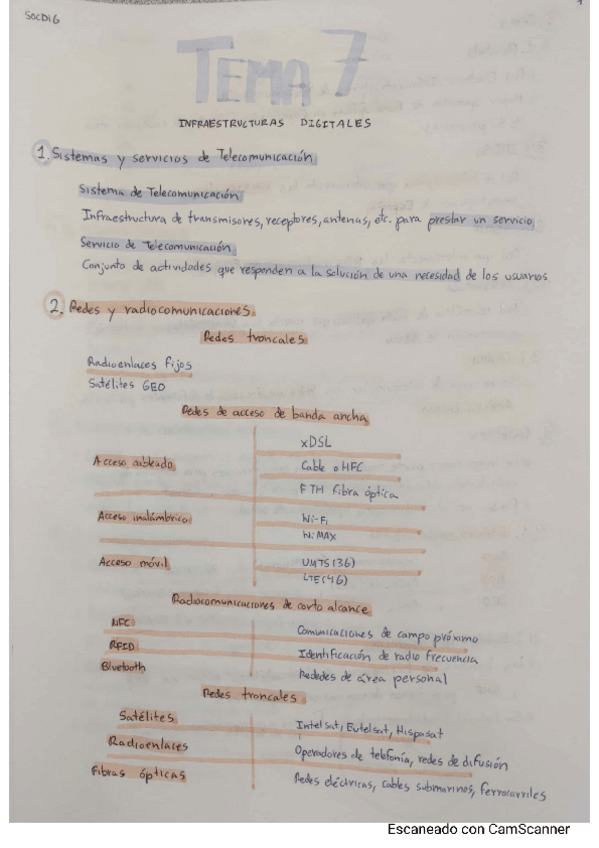 SOCDIG
TEMA 7
INFRAESTRUCTURAS DIGITALES
1. Sistemas y servicios de Telecomunicación
Sistema de Telecomunicación
Infraestructura de transmisores, receptores, antenas, etc. para prestar un servicio
Servicio de Telecomunicación
Conjunto de actividades que responden a la solución de una necesidad de los usuarios.
2. Redes y radiocomunicaciones.
Redes troncales
Radioenlaces fijos
Satélites GEO
Redes de acceso de banda ancha
xDSL
Acceso cableado
Cable o HFC
FTH fibra óptica
Acceso inalámbrico
Wi-Fi
WiMAX
Acceso móvil
UMTS (3G)
LTE (4G)
Radiocomunicaciones de corto alcance
NFC
Comunicaciones de campo próximo
RFID
Identificación de radio frecuencia
Bluetooth
Rededes de área personal
Redes troncales
Satélites
Intelsat, Eutelsat, Hispasat
Radioenlaces
Operadores de telefonía, redes de difusión
Fibras ópticas
Redes eléctricas, cables submarinos, ferrocarriles
Escaneado con CamScanner